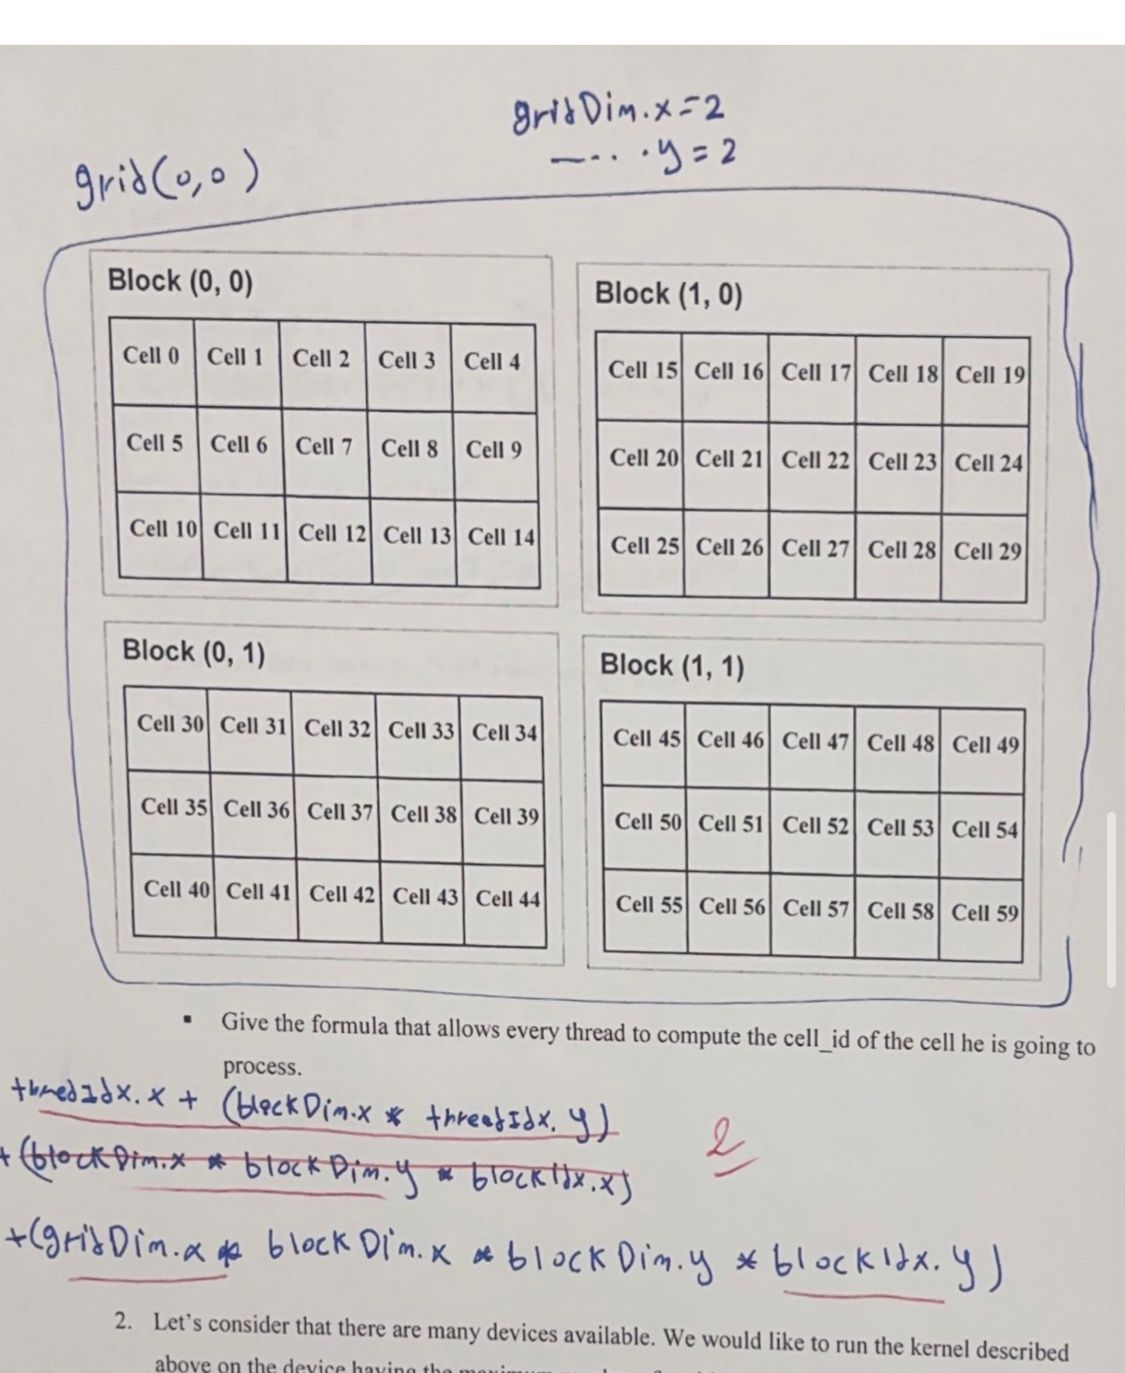 gridDim.x=2
--.. .y=2
grid(0,0)
Block (0, 0)
Cell 0 Cell 1 Cell 2 Cell 3 Cell 4
Cell 5 Cell 6 Cell 7 Cell 8 Cell 9
Cell 10 Cell 11 Cell 12 Cell 13 Cell 14
Block (1, 0)
Cell 15 Cell 16 Cell 17 Cell 18 Cell 19
Cell 20 Cell 21 Cell 22 Cell 23 Cell 24
Cell 25 Cell 26 Cell 27 Cell 28 Cell 29
Block (0, 1)
Cell 30 Cell 31 Cell 32 Cell 33 Cell 34
Cell 35 Cell 36 Cell 37 Cell 38 Cell 39
Cell 40 Cell 41 Cell 42 Cell 43 Cell 44
Block (1, 1)
Cell 45 Cell 46 Cell 47 Cell 48 Cell 49
Cell 50 Cell 51 Cell 52 Cell 53 Cell 54
Cell 55 Cell 56 Cell 57 Cell 58 Cell 59
▪ Give the formula that allows every thread to compute the cell_id of the cell he is going to
process.
thredIdx.x + (blockDim.x * threadIdx.y)
2
+ (blockDim.x * blockDim.y * blockIdx.x)
+(gridDim.x * blockDim.x * blockDim.y * blockIdx.y)
2. Let's consider that there are many devices available. We would like to run the kernel described
above on the device having the